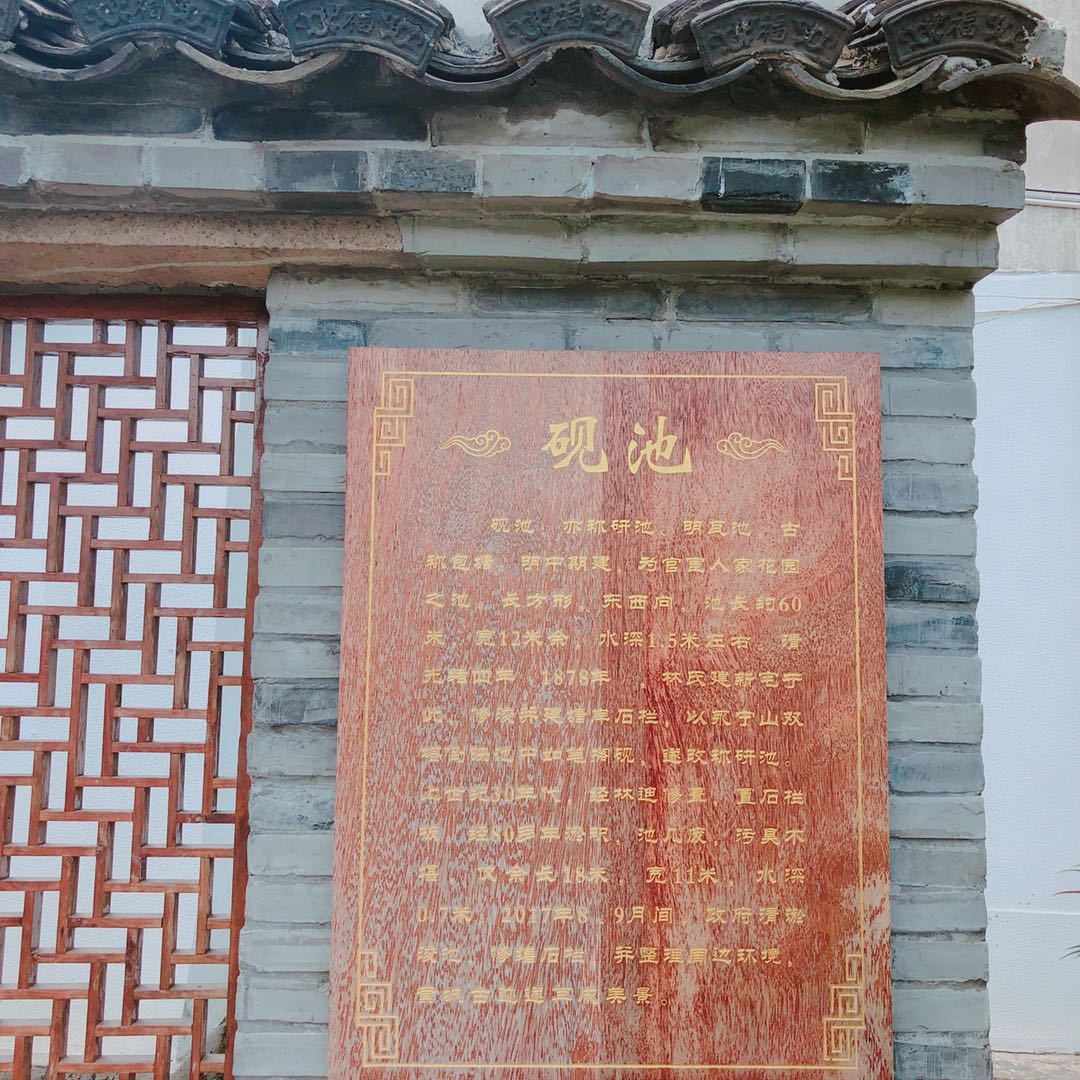 福
福
福
福
砚池
砚池、亦称研池、明瓦池，古
称包塘，明中期建，为官宦人家花园
之池，长方形，东西向，池长约60
米，宽12米余，水深1.5米左右，清
光绪四年 1878年 ，林氏建新宅于
此，修浚并建塘岸石栏，以永宁山双
塔倒映池中如墨搁砚，遂改称研池。
上世纪30年代，经林迪修葺，置石栏
板，经80多年淤积，池几废，污臭不
堪，仅余长18米，宽11米，水深
0.7米，2017年8、9月间，政府清淤
浚池，修缮石栏，并整理周边环境，
古迹遂再成美景。